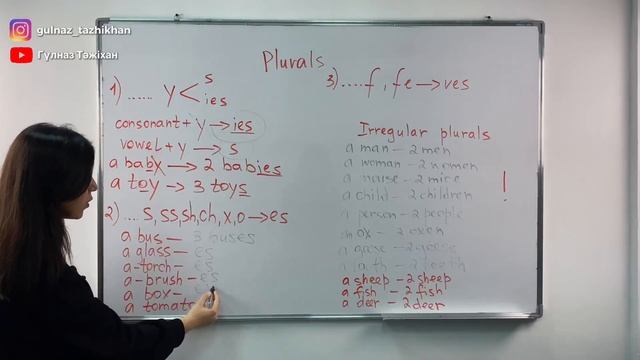 gulnaz_tazhikhan
Гүлназ Тәжіхан
Plurals
1) ...... y < s
ies
consonant + y → ies
vowel + y → s
a baby → 2 babies
a toy → 3 toys
2) .... s, ss, sh, ch, x, o → es
a bus — 3 buses
a glass — es
a torch — es
a brush — es
a box —
a tomato
3) .... f, fe → ves
Irregular plurals
a man — 2 men
a woman — 2 women
a mouse — 2 mice
a child — 2 children
a person — 2 people
ox — 2 oxen
a goose — 2 geese
2 teeth
a sheep — 2 sheep
a fish — 2 fish
a deer — 2 deer
!